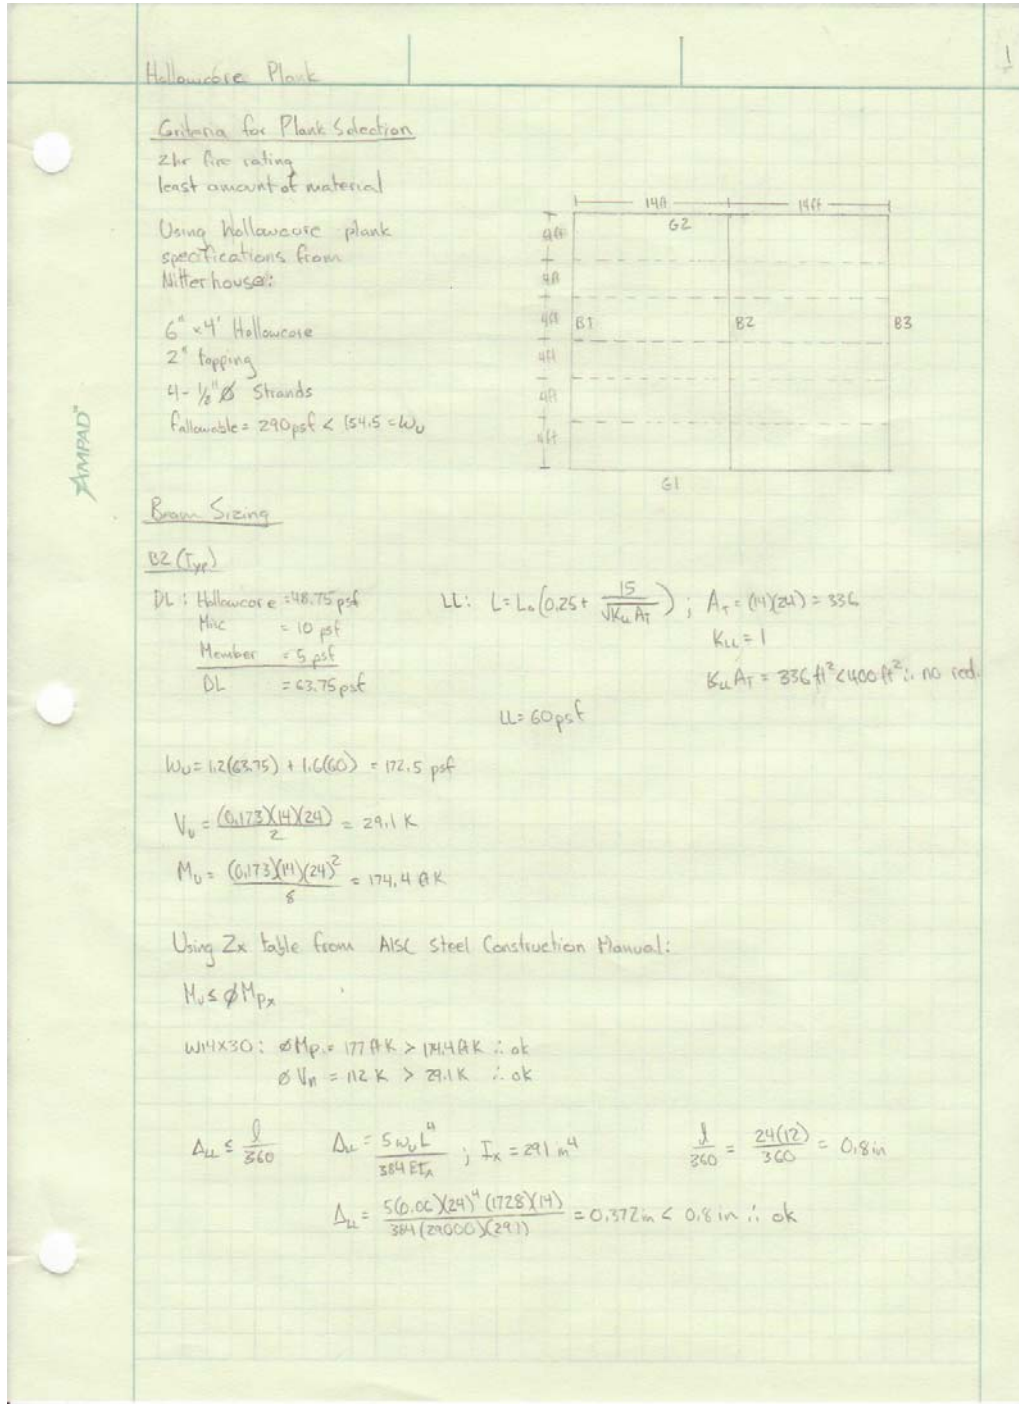 1
Hollowcore Plank
Criteria for Plank Selection
2hr fire rating
least amount of material
Using hollowcore plank
specifications from
Nitterhouse:
6" x 4' Hollowcore
2" topping
4 - 1/2" Ø Strands
fallowable = 290 psf < 154.5 = Wu
14ft 14ft
G2
4ft
4ft
4ft B1 B2 B3
4ft
4ft
4ft
G1
AMPAD™
Beam Sizing
B2 (Typ)
DL: Hollowcore = 48.75 psf
Misc = 10 psf
Member = 5 psf
DL = 63.75 psf
LL: L = L₀(0.25 + 15/√(KLL AT)) ; AT = (14)(24) = 336
KLL = 1
KLL AT = 336 ft² < 400 ft² ∴ no red.
LL = 60 psf
Wu = 1.2(63.75) + 1.6(60) = 172.5 psf
Vu = (0.173)(14)(24)/2 = 29.1 K
Mu = (0.173)(14)(24)²/8 = 174.4 ft K
Using Zx table from AISC Steel Construction Manual:
Mu ≤ ØMpx
W14x30: ØMp = 177 ft K > 174.4 ft K ∴ ok
ØVn = 112 K > 29.1 K ∴ ok
ΔLL ≤ l/360 ΔLL = 5 wu L⁴/384 EIx ; Ix = 291 in⁴ l/360 = 24(12)/360 = 0.8 in
ΔLL = 5(0.06)(24)⁴(1728)(14)/384(29000)(291) = 0.372 in < 0.8 in ∴ ok